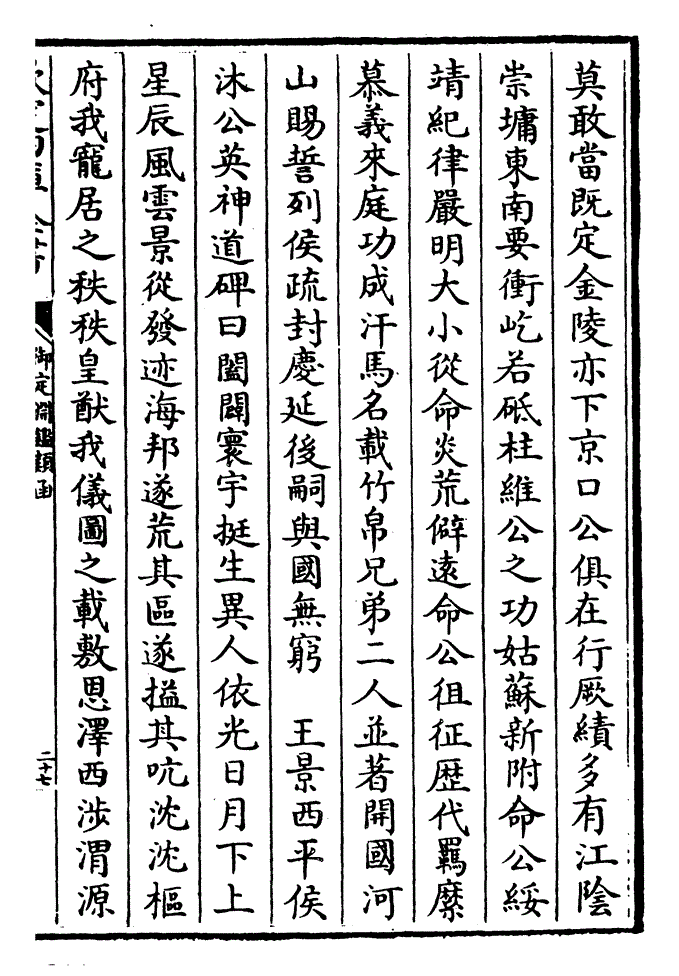 莫敢當既定金陵亦下京口公俱在行厥績多有江陰
崇墉東南要衝屹若砥柱維公之功姑蘇新附命公綏
靖紀律嚴明大小從命炎荒僻遠命公徂征歴代羈縻
慕義來庭功成汗馬名載竹帛兄弟二人並著開國河
山賜誓列侯疏封慶延後嗣與國無窮　王景西平侯
沐公英神道碑曰闔闢寰宇挺生異人依光日月下上
星辰風雲景從發迹海邦遂荒其區遂搤其吭沈沈樞
府我寵居之秩秩皇猷我儀圖之載敷恩澤西涉渭源
御定淵鑑類函
二十七